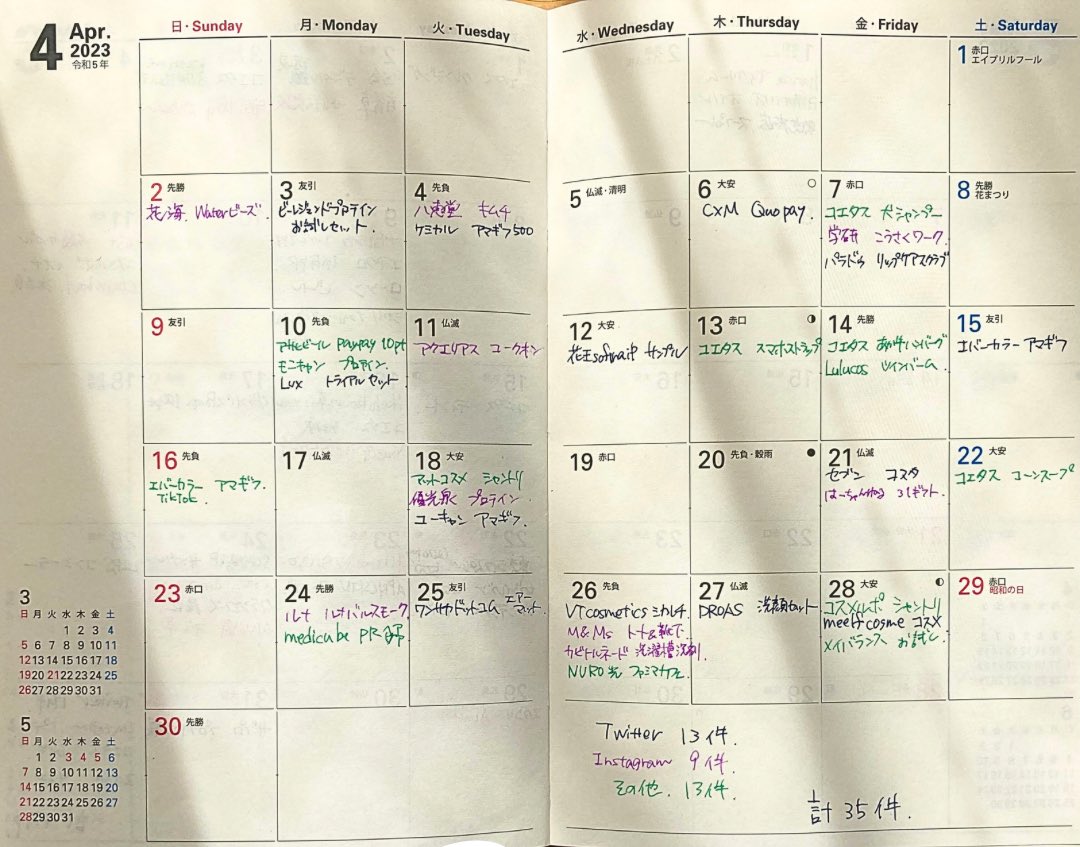 4 Apr. 2023 令和5年
日・Sunday 月・Monday 火・Tuesday 水・Wednesday 木・Thursday 金・Friday 土・Saturday
1 赤口 エイプリルフール
2 先勝
花ノ海 Waterビーズ
3 友引
ビーレジェンドプロテイン
お試しセット
4 先負
八志堂 キムチ
ケミカル アマギフ500
5 仏滅・清明
6 大安
CXM Quopay
7 赤口
コエタス 犬シャンプー
学研 こうさくワーク
パラドゥ リップケアスクラブ
8 先勝 花まつり
9 友引
10 先負
アサヒビール paypay 10pt
モニキャン プロテイン
Lux トライアルセット
11 仏滅
アクエリアス コークオン
12 大安
花王sofinaiP サンプル
13 赤口
コエタス スマホストラップ
14 先勝
コエタス あか牛ハンバーグ
Lulucos ツインバーム
15 友引
エバーカラー アマギフ
16 先負
エバーカラー アマギフ
TikTok
17 仏滅
18 大安
アットコスメ シャントリ
優光泉 プロテイン
ユーキャン アマギフ
19 赤口
20 先負・穀雨
21 仏滅
セブン コスタ
はーちゃんねる 31ギフト
22 大安
コエタス コーンスープ
23 赤口
24 先勝
ルナ ルナバルスモーク
medicube PR
25 友引
ワンサカドットコム エアーマット
26 先負
VTcosmetics ミカルチ
M&Ms トート&靴下
カビトルネード 洗濯槽洗剤
NURO光 ファミマカフェ
27 仏滅
DROAS 洗顔セット
28 大安
コスメルポ シャントリ
meeth cosme コスメ
メイバランス お試し
29 赤口 昭和の日
30 先勝
Twitter 13件.
Instagram 9件.
その他. 13件.
計 35件.
3
日 月 火 水 木 金 土
1 2 3 4
5 6 7 8 9 10 11
12 13 14 15 16 17 18
19 20 21 22 23 24 25
26 27 28 29 30 31
5
日 月 火 水 木 金 土
1 2 3 4 5 6
7 8 9 10 11 12 13
14 15 16 17 18 19 20
21 22 23 24 25 26 27
28 29 30 31